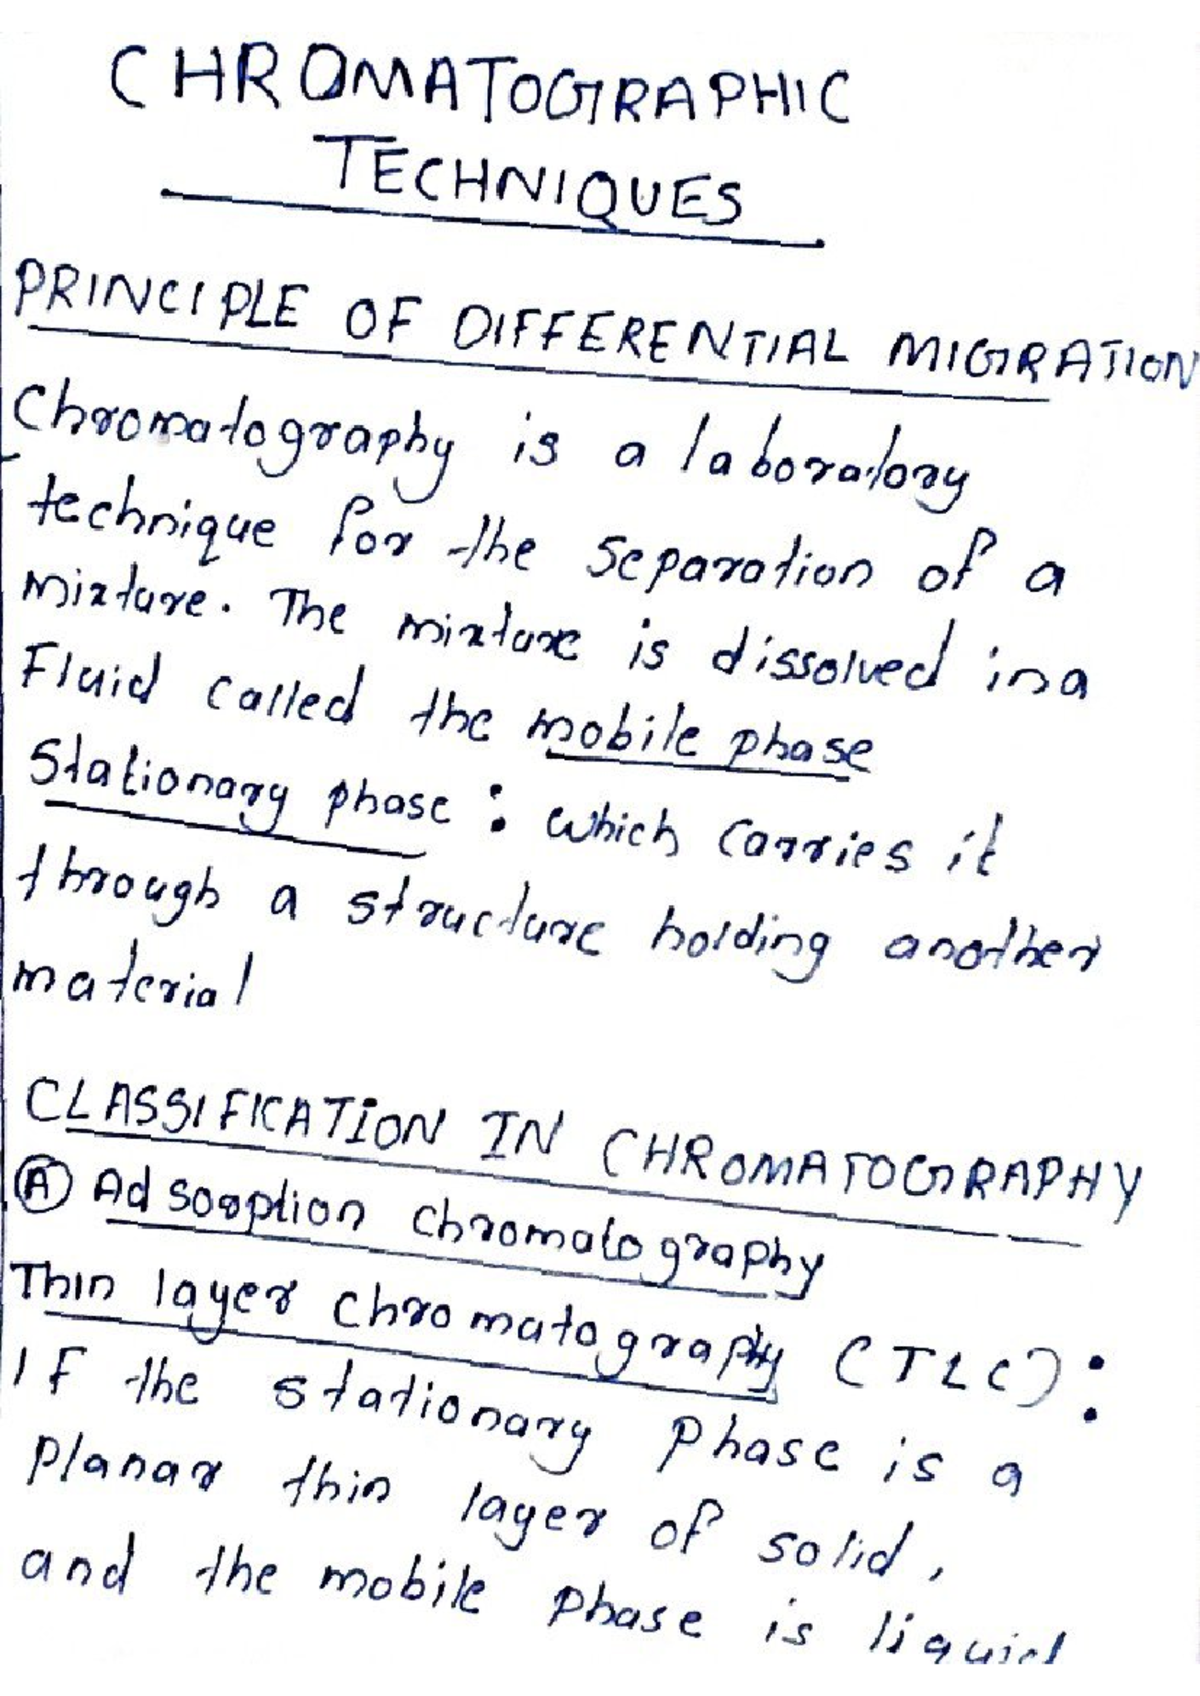 CHROMATOGRAPHIC
TECHNIQUES
PRINCIPLE OF DIFFERENTIAL MIGRATION
Chromatography is a laboratory
technique for the separation of a
mixture. The mixture is dissolved in a
Fluid called the mobile phase
Stationary phase : which carries it
through a structure holding another
material
CLASSIFICATION IN CHROMATOGRAPHY
(A) Adsorption chromatography
Thin layer chromatography (TLC) :
IF the stationary phase is a
planar thin layer of solid,
and the mobile phase is liquid